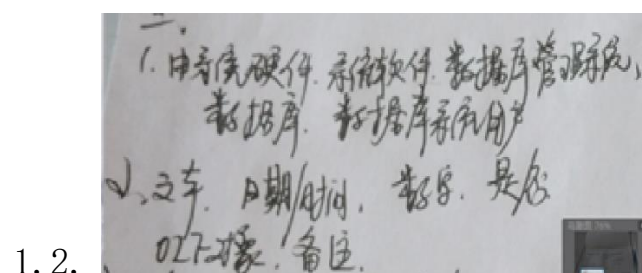 二、
1. 由系统硬件、系统软件、数据库管理系统、
数据库、数据库系统用户
2、文本、日期/时间、数字、是/否
OLE对象、备注.
1.2.